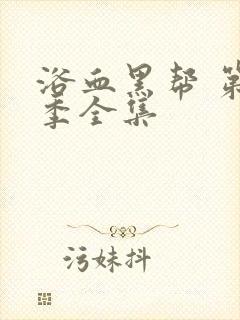 浴血黑帮 第
季全集
污妹抖